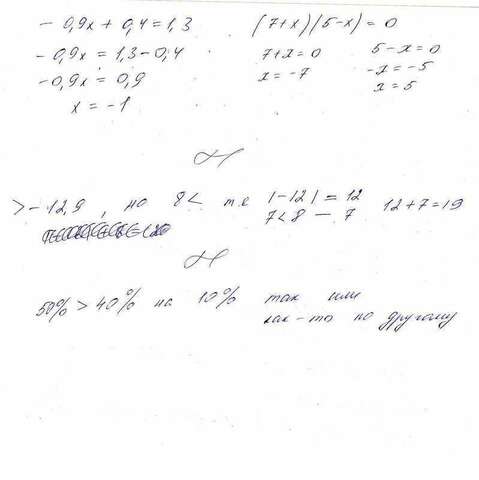 - 0,9x + 0,4 = 1,3
- 0,9x = 1,3 - 0,4
- 0,9x = 0,9
x = -1
(7+x)(5-x) = 0
7+x=0
x = -7
5-x=0
-x=-5
x=5
> - 12,9, но 8 < т.е |-12| = 12
7<8 — 7
12+7=19
50% > 40% на 10% так или
как-то по другому